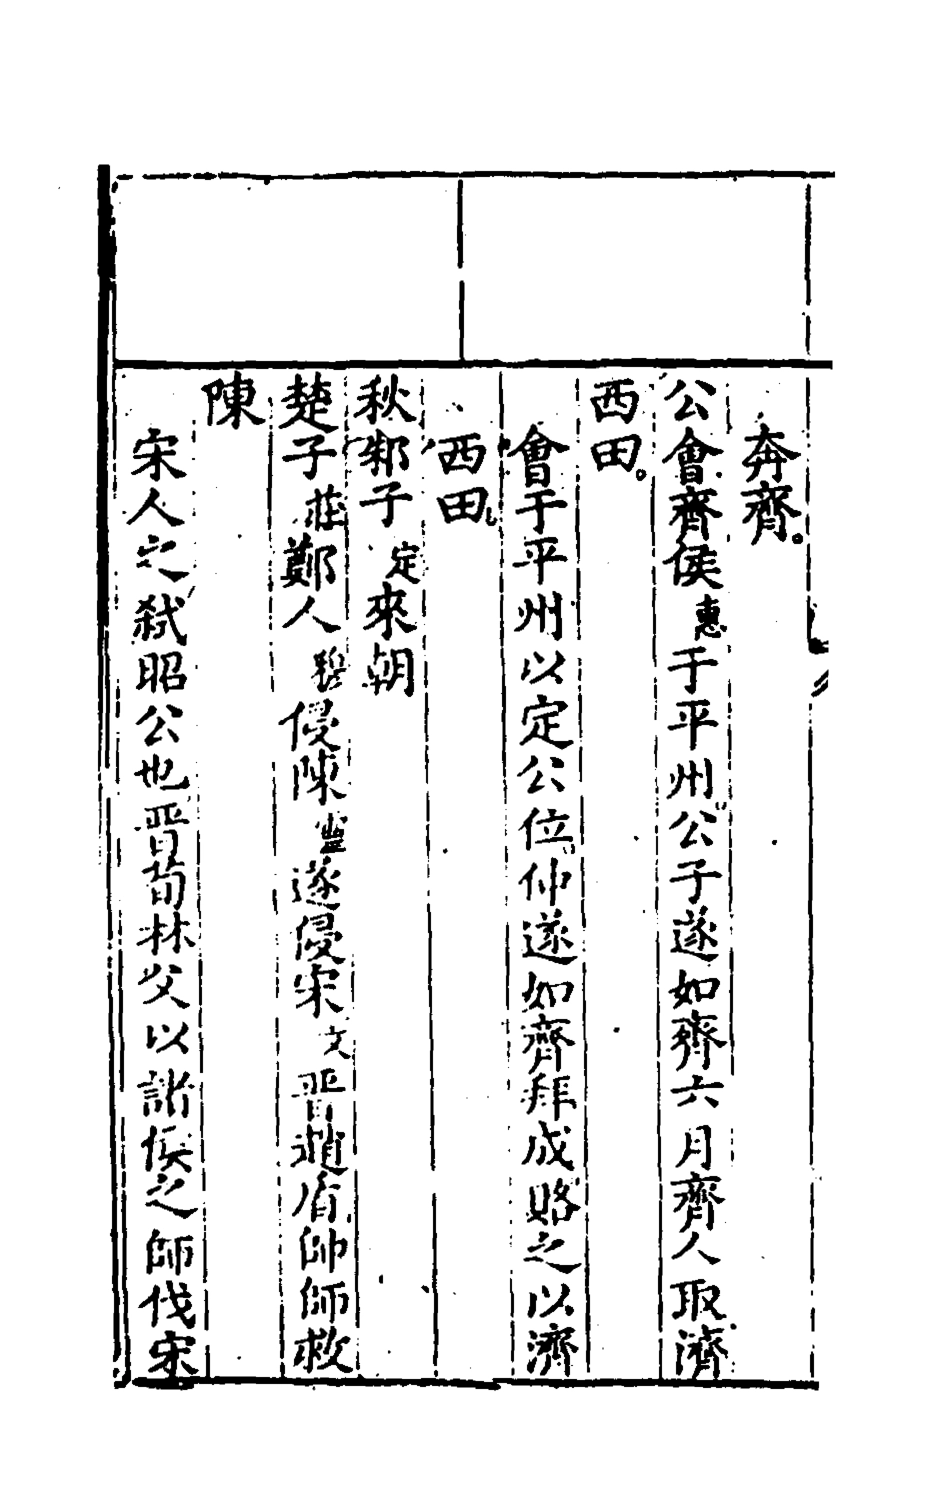 奔齊。
公會齊侯惠于平州公子遂如齊六月齊人取濟
西田。
會于平州以定公位仲遂如齊拜成賂之以濟
西田
秋邾子定來朝
楚子莊鄭人穆侵陳靈遂侵宋文晋趙盾帥師救
陳
宋人之弑昭公也晋荀林父以諸侯之師伐宋